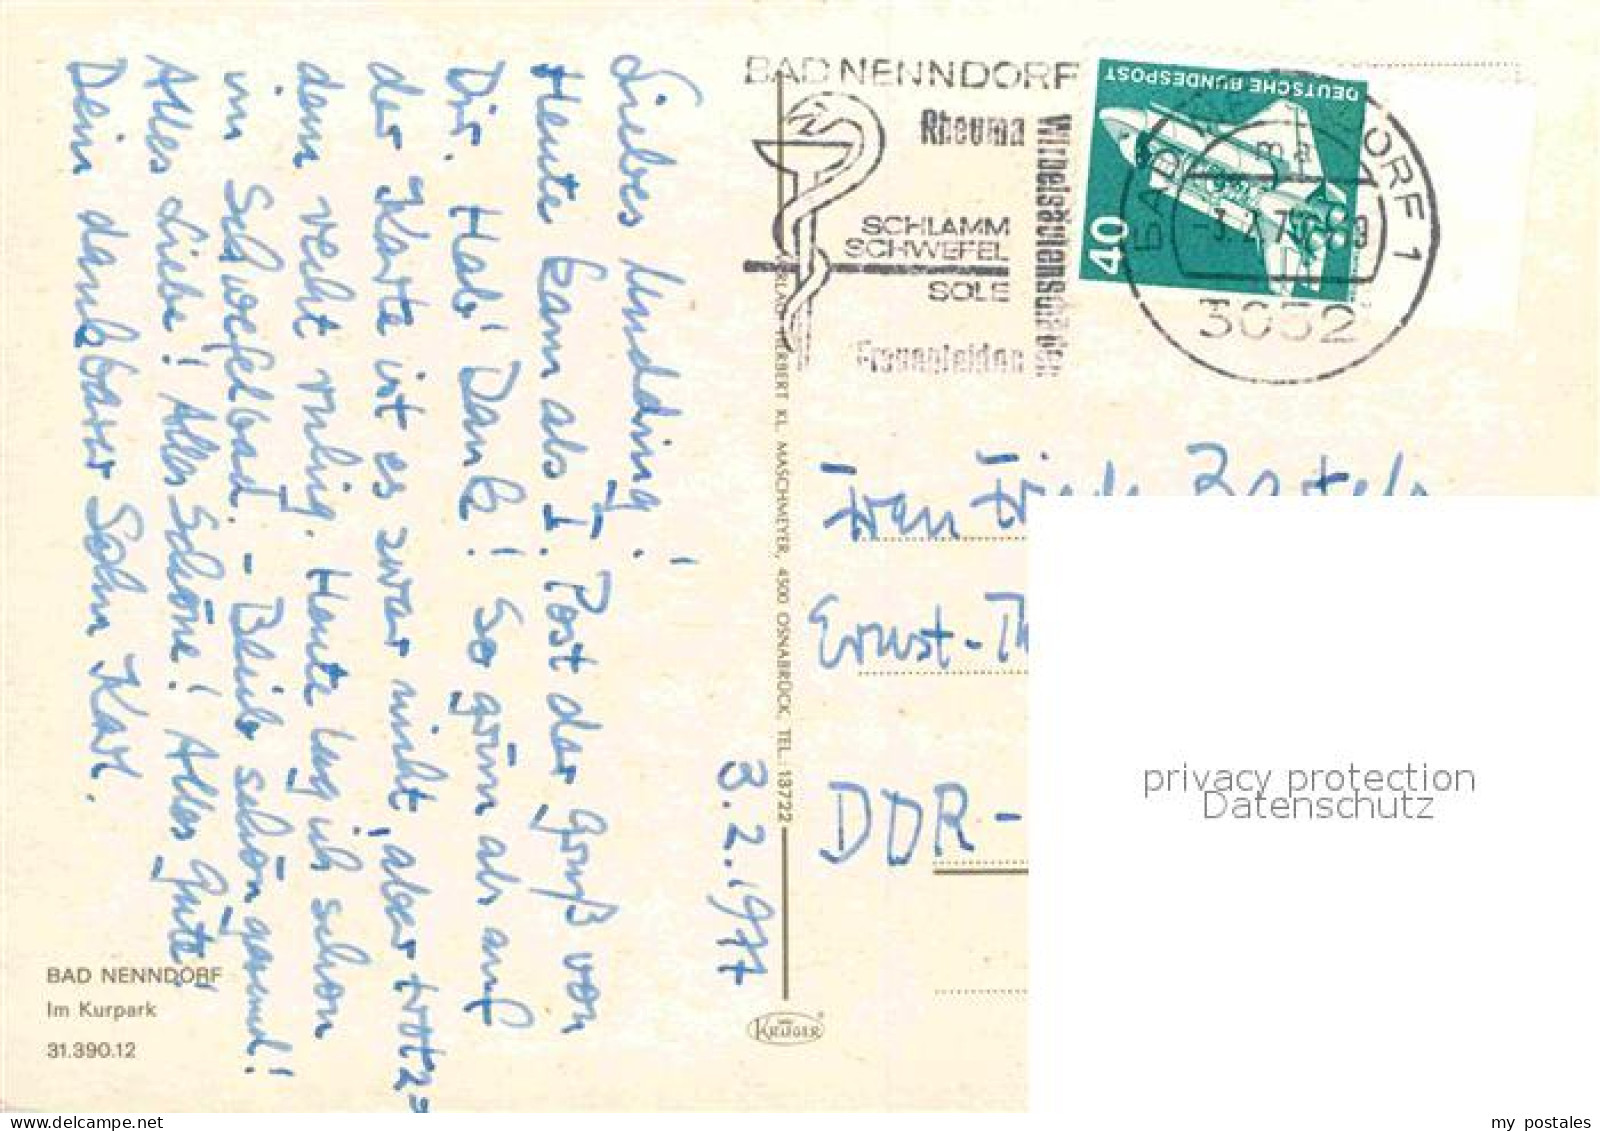 Liebes Mudding!
Heute kam als I. Post der Gruß von
Dir. Hab' Dank! So grün als auf
der Karte ist es zwar nicht, aber trotz-
dem recht ruhig. Heute lag ich schon
im Schwefelbad. - Bleib schön gesund!
Alles Liebe! Alles Schöne! Alles Gute!
Dein dankbarer Sohn Karl.
3.2.1977
BAD NENNDORF
Im Kurpark
31.390.12
VERLAG HERBERT KL. MASCHMEYER, 4500 OSNABRÜCK, TEL.: 13722
KRÜGER
BAD NENNDORF
Rheuma
Wirbelsäulenschäden
SCHLAMM
SCHWEFEL
SOLE
Frauenleiden
DEUTSCHE BUNDESPOST
40
BAD NENNDORF 1
ma
3052
Frau Frieda Bartels
Ernst-Th
DDR-
privacy protection
Datenschutz
my postales